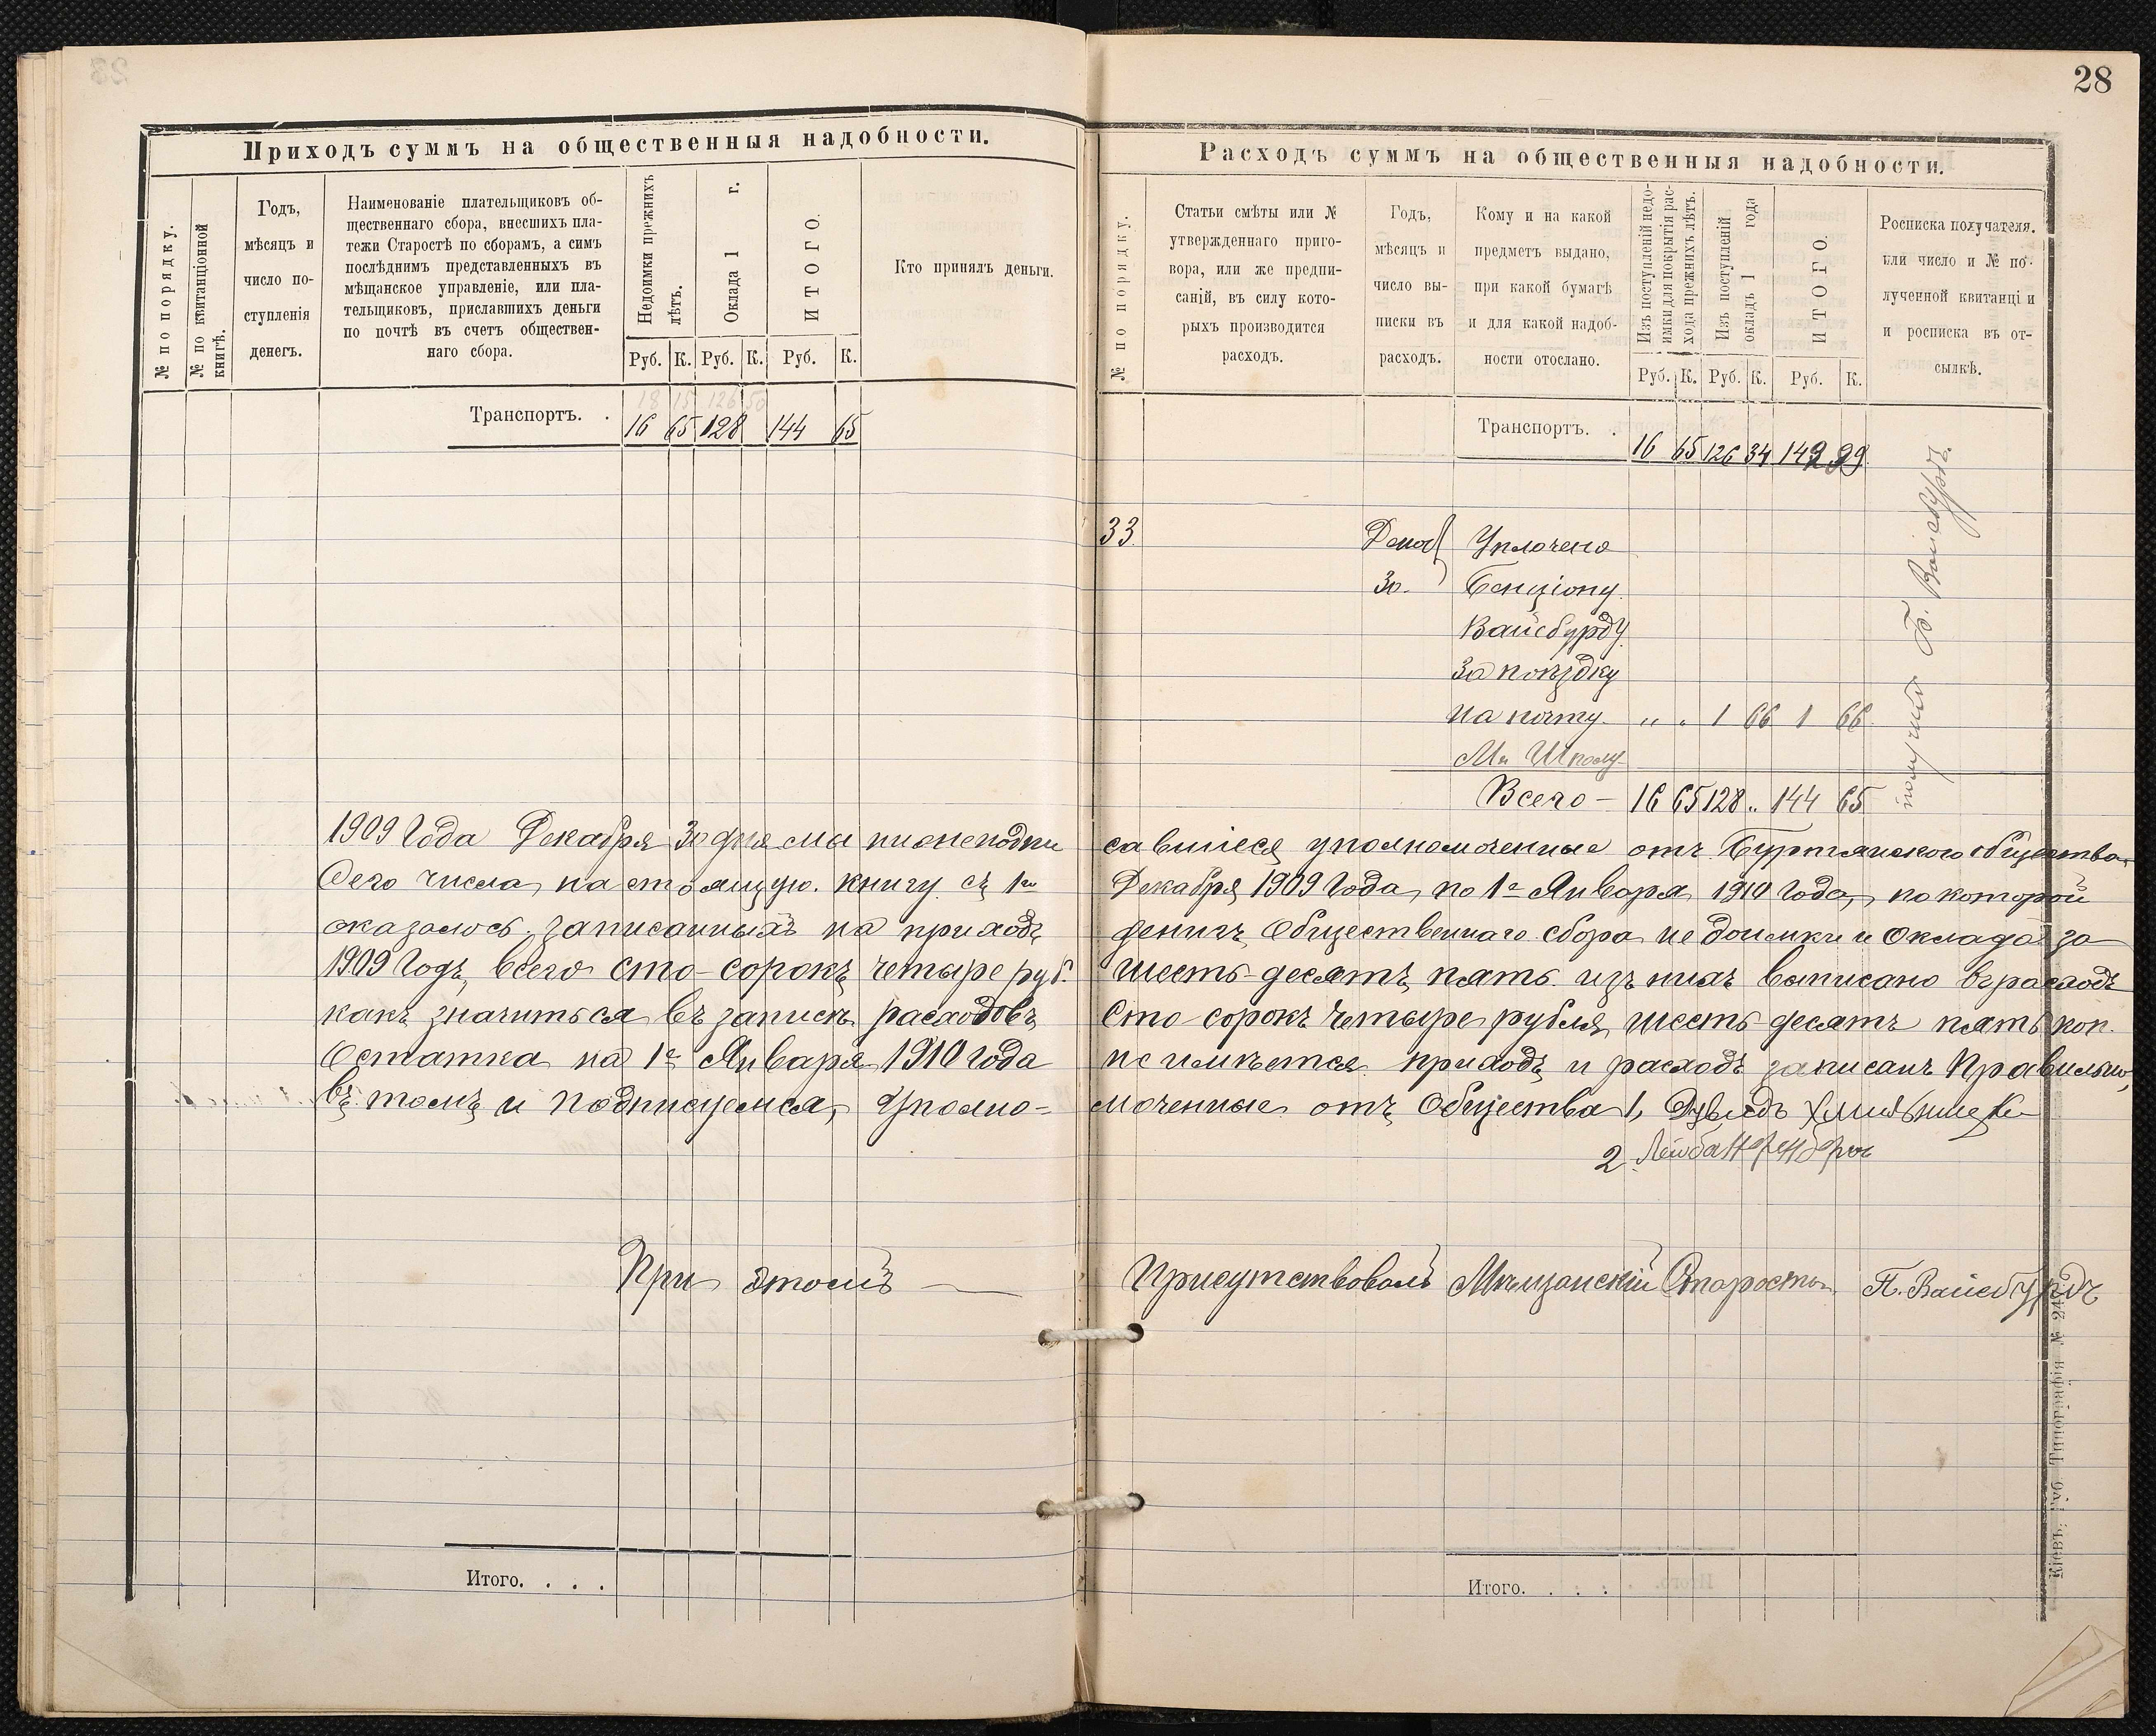 28
Приходъ суммъ на общественныя надобности.
№ по порядку.
№ по квитанціонной книгѣ.
Годъ,
мѣсяцъ и
число по-
ступленія
денегъ.
Наименованіе плательщиковъ об-
щественнаго сбора, внесшихъ пла-
тежи Старостѣ по сборамъ, а симъ
послѣднимъ представленныхъ въ
мѣщанское управленіе, или пла-
тельщиковъ, приславшихъ деньги
по почтѣ въ счетъ обществен-
наго сбора.
Недоимки прежнихъ
лѣтъ.
Оклада 1 г.
ИТОГО.
Кто принялъ деньги.
Руб. К. Руб. К. Руб. К.
18 15 126 50
Транспортъ. . 16 65 128 144 65
Расходъ суммъ на общественныя надобности.
№ по порядку.
Статьи смѣты или №
утвержденнаго приго-
вора, или же предпи-
саній, въ силу кото-
рыхъ производится
расходъ.
Годъ,
мѣсяцъ и
число вы-
писки въ
расходъ.
Кому и на какой
предметъ выдано,
при какой бумагѣ
и для какой надоб-
ности отослано.
Изъ поступленій недо-
имки для покрытія рас-
хода прежнихъ лѣтъ.
Изъ поступленій
окладъ 1 года
ИТОГО.
Росписка получателя.
или число и № по-
лученной квитанціи
и росписка въ от-
сылкѣ.
Руб. К. Руб. К. Руб. К.
Транспортъ. . 16 65 126 34 142 99
33 Уплочено
30. Бенціону
Вайсбурду
За поѣздку
на почту " " 1 66 1 66
Мѣ Шполу
получилъ Б. Вайсбурдъ.
Всего - 16 65 128 .. 144 65
1909 Года Декабря 30 дня мы нижеподпи
савшіеся уполномоченные отъ Буртянского общества
Сего числа, настоящую книгу съ 1го
Декабря 1909 Года, по 1е Января 1910 Года, по которой
оказалось записанныхъ на приходъ
денигъ Общественнаго сбора недоимки и Оклада за
1909 Годъ, всего сто-сорокъ четыре руб.
шесть-десятъ пять изъ нихъ выписано въ расходъ
какъ значиться въ записѣ расходовъ
Сто-сорокъ четыре рубля шесть-десятъ пять коп.
Остатка на 1е Января 1910 года
не имѣется приходъ и расходъ записанъ Правильно,
въ томъ и подписуемся, Уполно-
моченные отъ Общества 1,
2. Лейба
При этомъ —
Присутствовалъ Мѣщанскій Староста П. Вайсбурдъ
Итого. . . .
Итого. . . .
Кіевъ, Губ. Типографія №